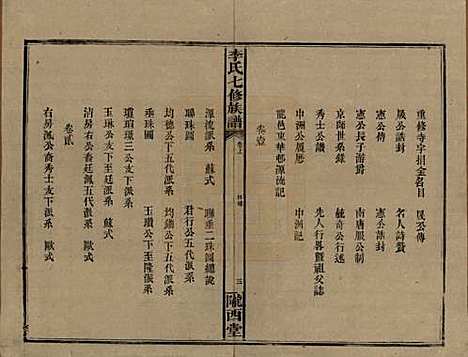 重修寺字捐金名目　艮公傳
晟公誥封　名人詩贊
憲公傳　憲公誥封
憲公長子游爵　南唐服公制
京師世系錄　毓奇公行述
秀士公譜　先人行畧暨祖父誌
中洲公履歷　中洲記
龍邑東華邨源流記
卷壹
李氏七修族譜
卷上
目錄
三
隴西堂
源流派系　蘇式　聯垂二珠圖總說
聯珠圖　君行公下五代派系
均德公下五代派系　均錫公下五代派系
垂珠圖　玉瓚公下至隆派系
瓊瑄環三公支下派系
玉琳公支下派系　蘇式
沾房右公裔廷諷五代派系　歐式
卷貳
右房元公裔秀士支下派系　歐式